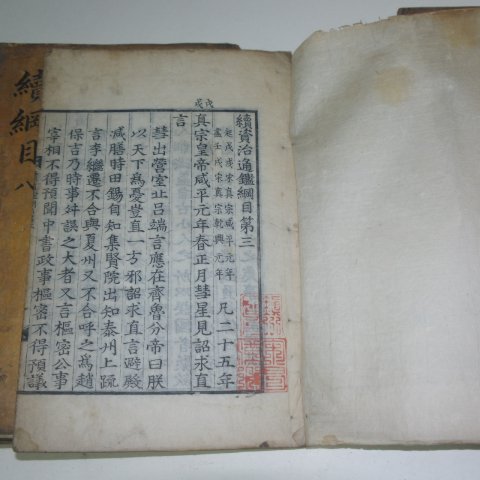 續資治通鑑綱目第三
起戊戌宋真宗咸平元年
盡壬戌宋真宗乾興元年
凡二十五年
戊戌
真宗皇帝咸平元年春正月彗星見詔求直
言
彗出營室北吕端言應在齊魯分帝曰朕
以天下為憂豈直一方邪詔求直言避殿
减膳時田錫自知集賢院出知泰州上疏
言李繼遷不合與夏州又不合呼之爲趙
保吉乃時事舛誤之大者又言樞密公事
宰相不得預聞中書政事樞密不得預議
續綱目 八